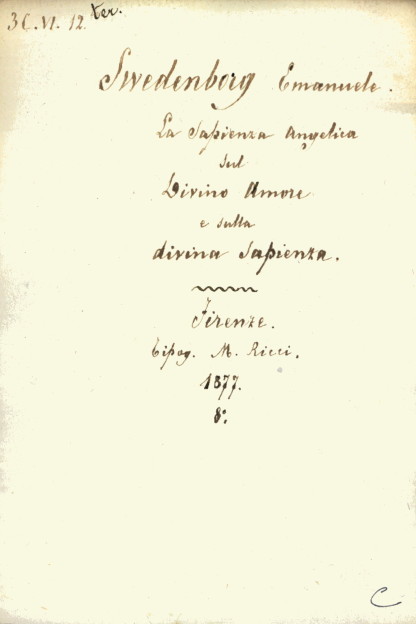 3 C. VI. 12. ter.
Swedenborg Emanuele.
La Sapienza Angelica
sul
Divino Amore
e sulla
divina Sapienza.
Firenze.
Tipog. M. Ricci.
1877.
8º.
C